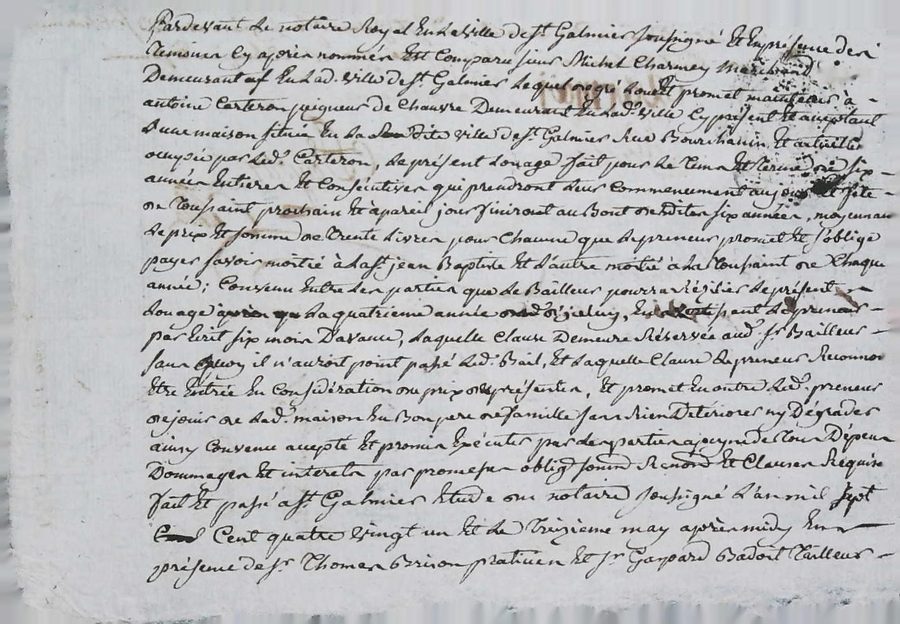 Pardevant le notaire Royal en la ville de St Galmier soussigné Et En présence des
temoins Cy après nommés Est Comparu sieur Michel Charmey Marchand
Demeurant en Lad. ville de St Galmier lequel de gré loue Et promet maintenir à
antoine Carteron peigneur de Chanvre Demeurant En lad. ville Cy présent Et acceptant
Dune maison située En la dite ville de St Galmier Rue Et actuelle
ocupée par led. Carteron, le présent louage fait pour le tems Et terme de six
années Entieres Et Conséqutives qui prendront leur Commencement aujour Et fête
de Toussaint prochain Et à pareil jour finiront au Bout desdites six années, moyenan
le prix Et somme de trente livres pour Chacune que le preneur promet Et s'oblige
payer savoir moitié à la St jean Baptiste Et l'autre moitié à la toussaint de Chaque
année; Convenu Entre les parties que le Bailleur pourra rézilier le présent
louage la quatrieme année d'iceluy, En le preneur
par Ecrit six mois Davance, laquelle Clause Demeure Réservée aud. Sr Bailleur
sans quoy il n'auroit point passé led. Bail, Et laquelle Clause le preneur Reconnoi
Etre Entrée En Considération du prix des présentes, Et promet En outre led. preneur
de jouir de lad. maison En Bon pere de famille sans rien Détériorer ny Dégrader
ainsy Convenu accepté Et promis Exécuter par les parties a peyne de tous Dépens
Dommages Et interets par promesses oblig. soumis. Renonc. Et Clauses Requise
fait Et passé a St Galmier Etude du notaire soussigné L'an mil sept
Cent quatre vingt un Et le Treizieme may après midy En
présence de Sr Thomas Brison praticien Et Sr Gaspard Badoit Tailleur